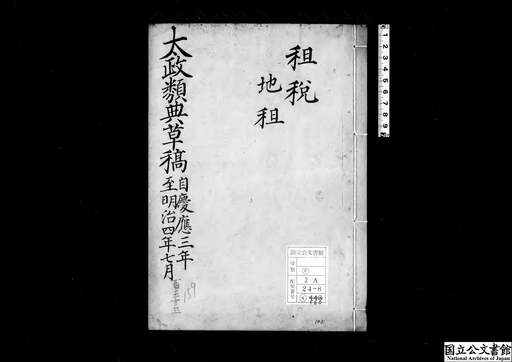 租税
地租
太政類典草稿
自慶應三年
至明治四年七月
百三十五
159
国立公文書館
分類
配架番号
2 A
24-8
1 2 3 4 5 6 7 8 9
国立公文書館
National Archives of Japan